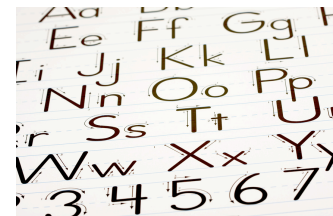 Aa Bb
Ee Ff Gg
Ii Jj Kk Ll
Nn Oo Pp
Ss Tt U
Ww Xx Yy
3 4 5 6 7